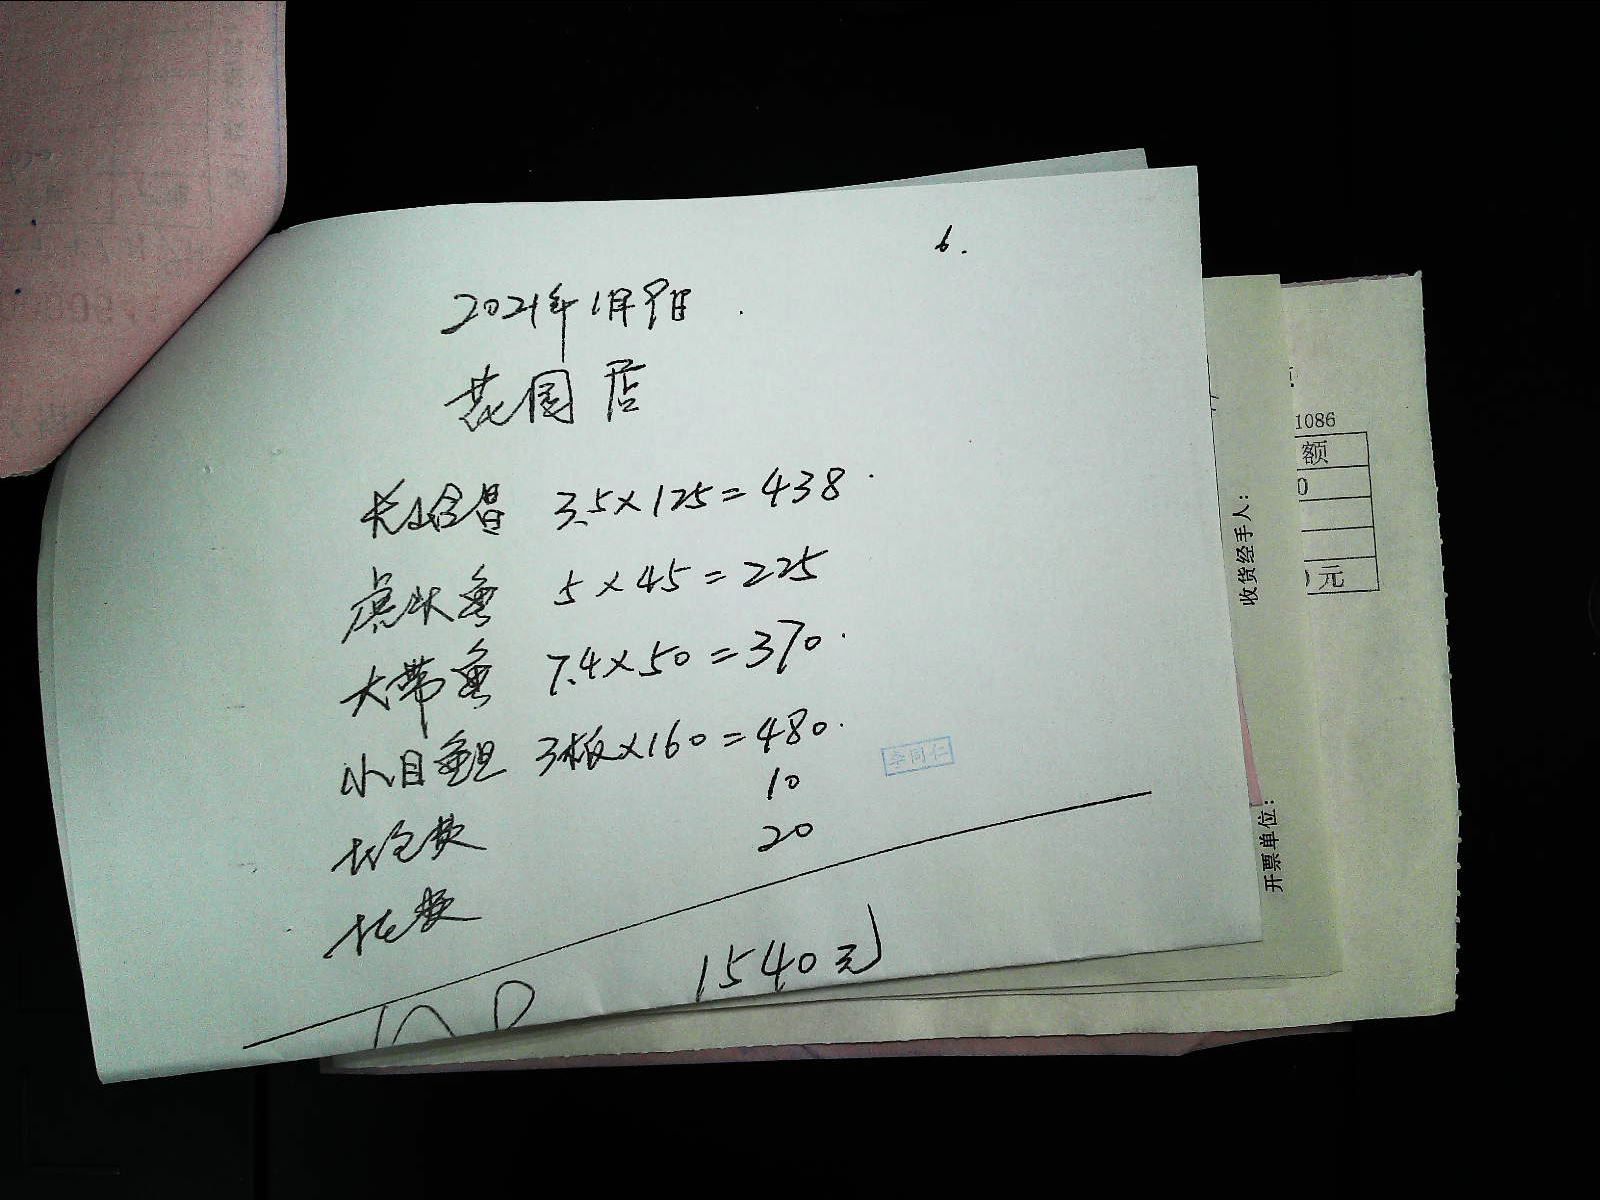 6.
2021年1月9日
花园店
3.5×125=438
虎头鱼 5×45=225
大带鱼 7.4×50=370
小目鱼旦 3板×160=480
10
20
1540元
李同仁
收货经手人:
开票单位:
1086
额
0
元